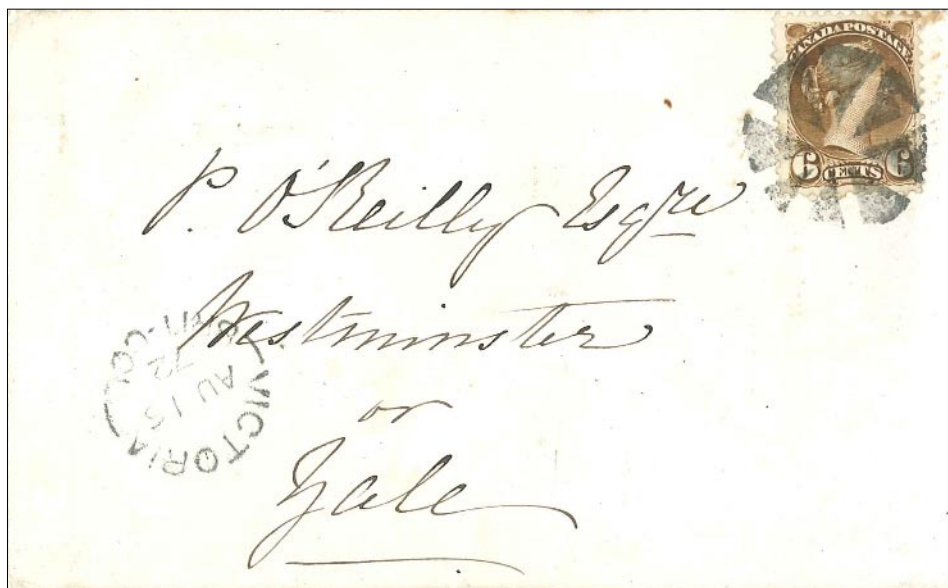 CANADA POSTAGE
6 CENTS 6
P. O'Reilly Esqre
Westminster
or
Yale
VICTORIA
AU 15
72